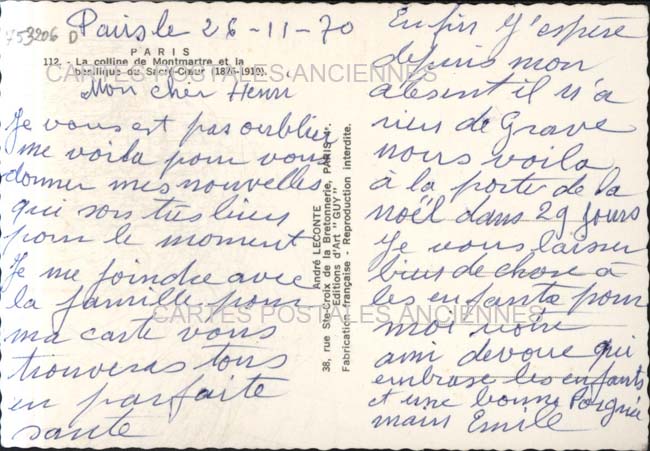 753206 D
Paris le 26-11-70
PARIS
112. - La colline de Montmartre et la
basilique du Sacré-Cœur (1876-1910).
CARTES POSTALES ANCIENNES
Mon cher Henri
Je vous est pas oublier
me voila pour vous
donner mes nouvelles
qui sois très bien
pour le moment
Je me joindre avec
la famille pour
ma carte vous
trouveras tous
en parfaite
santé
André LECONTE
38, rue Ste-Croix de la Bretonnerie, PARIS 4e.
Editions d'Art "GUY"
Fabrication française - Reproduction interdite.
CARTES POSTALES ANCIENNES
Enfin J'espère
depuis mon
absent il n'a
rien de Grave
nous voila
à la porte de la
noël dans 29 jours
Je vous laisser
bien de chose à
les enfants pour
moi votre
ami devoue qui
embrase les enfants
et une bonne Poignée
main Emile